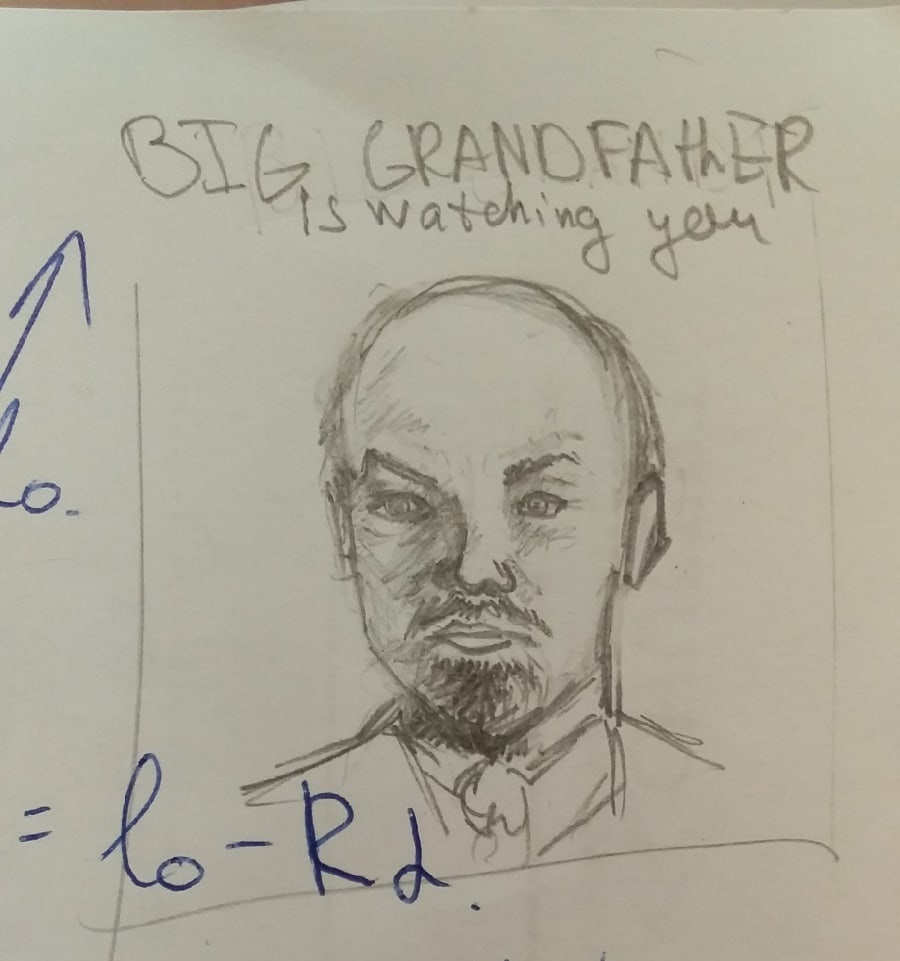 BIG GRANDFAthER
is watching you
l₀.
= l₀ - Rα.